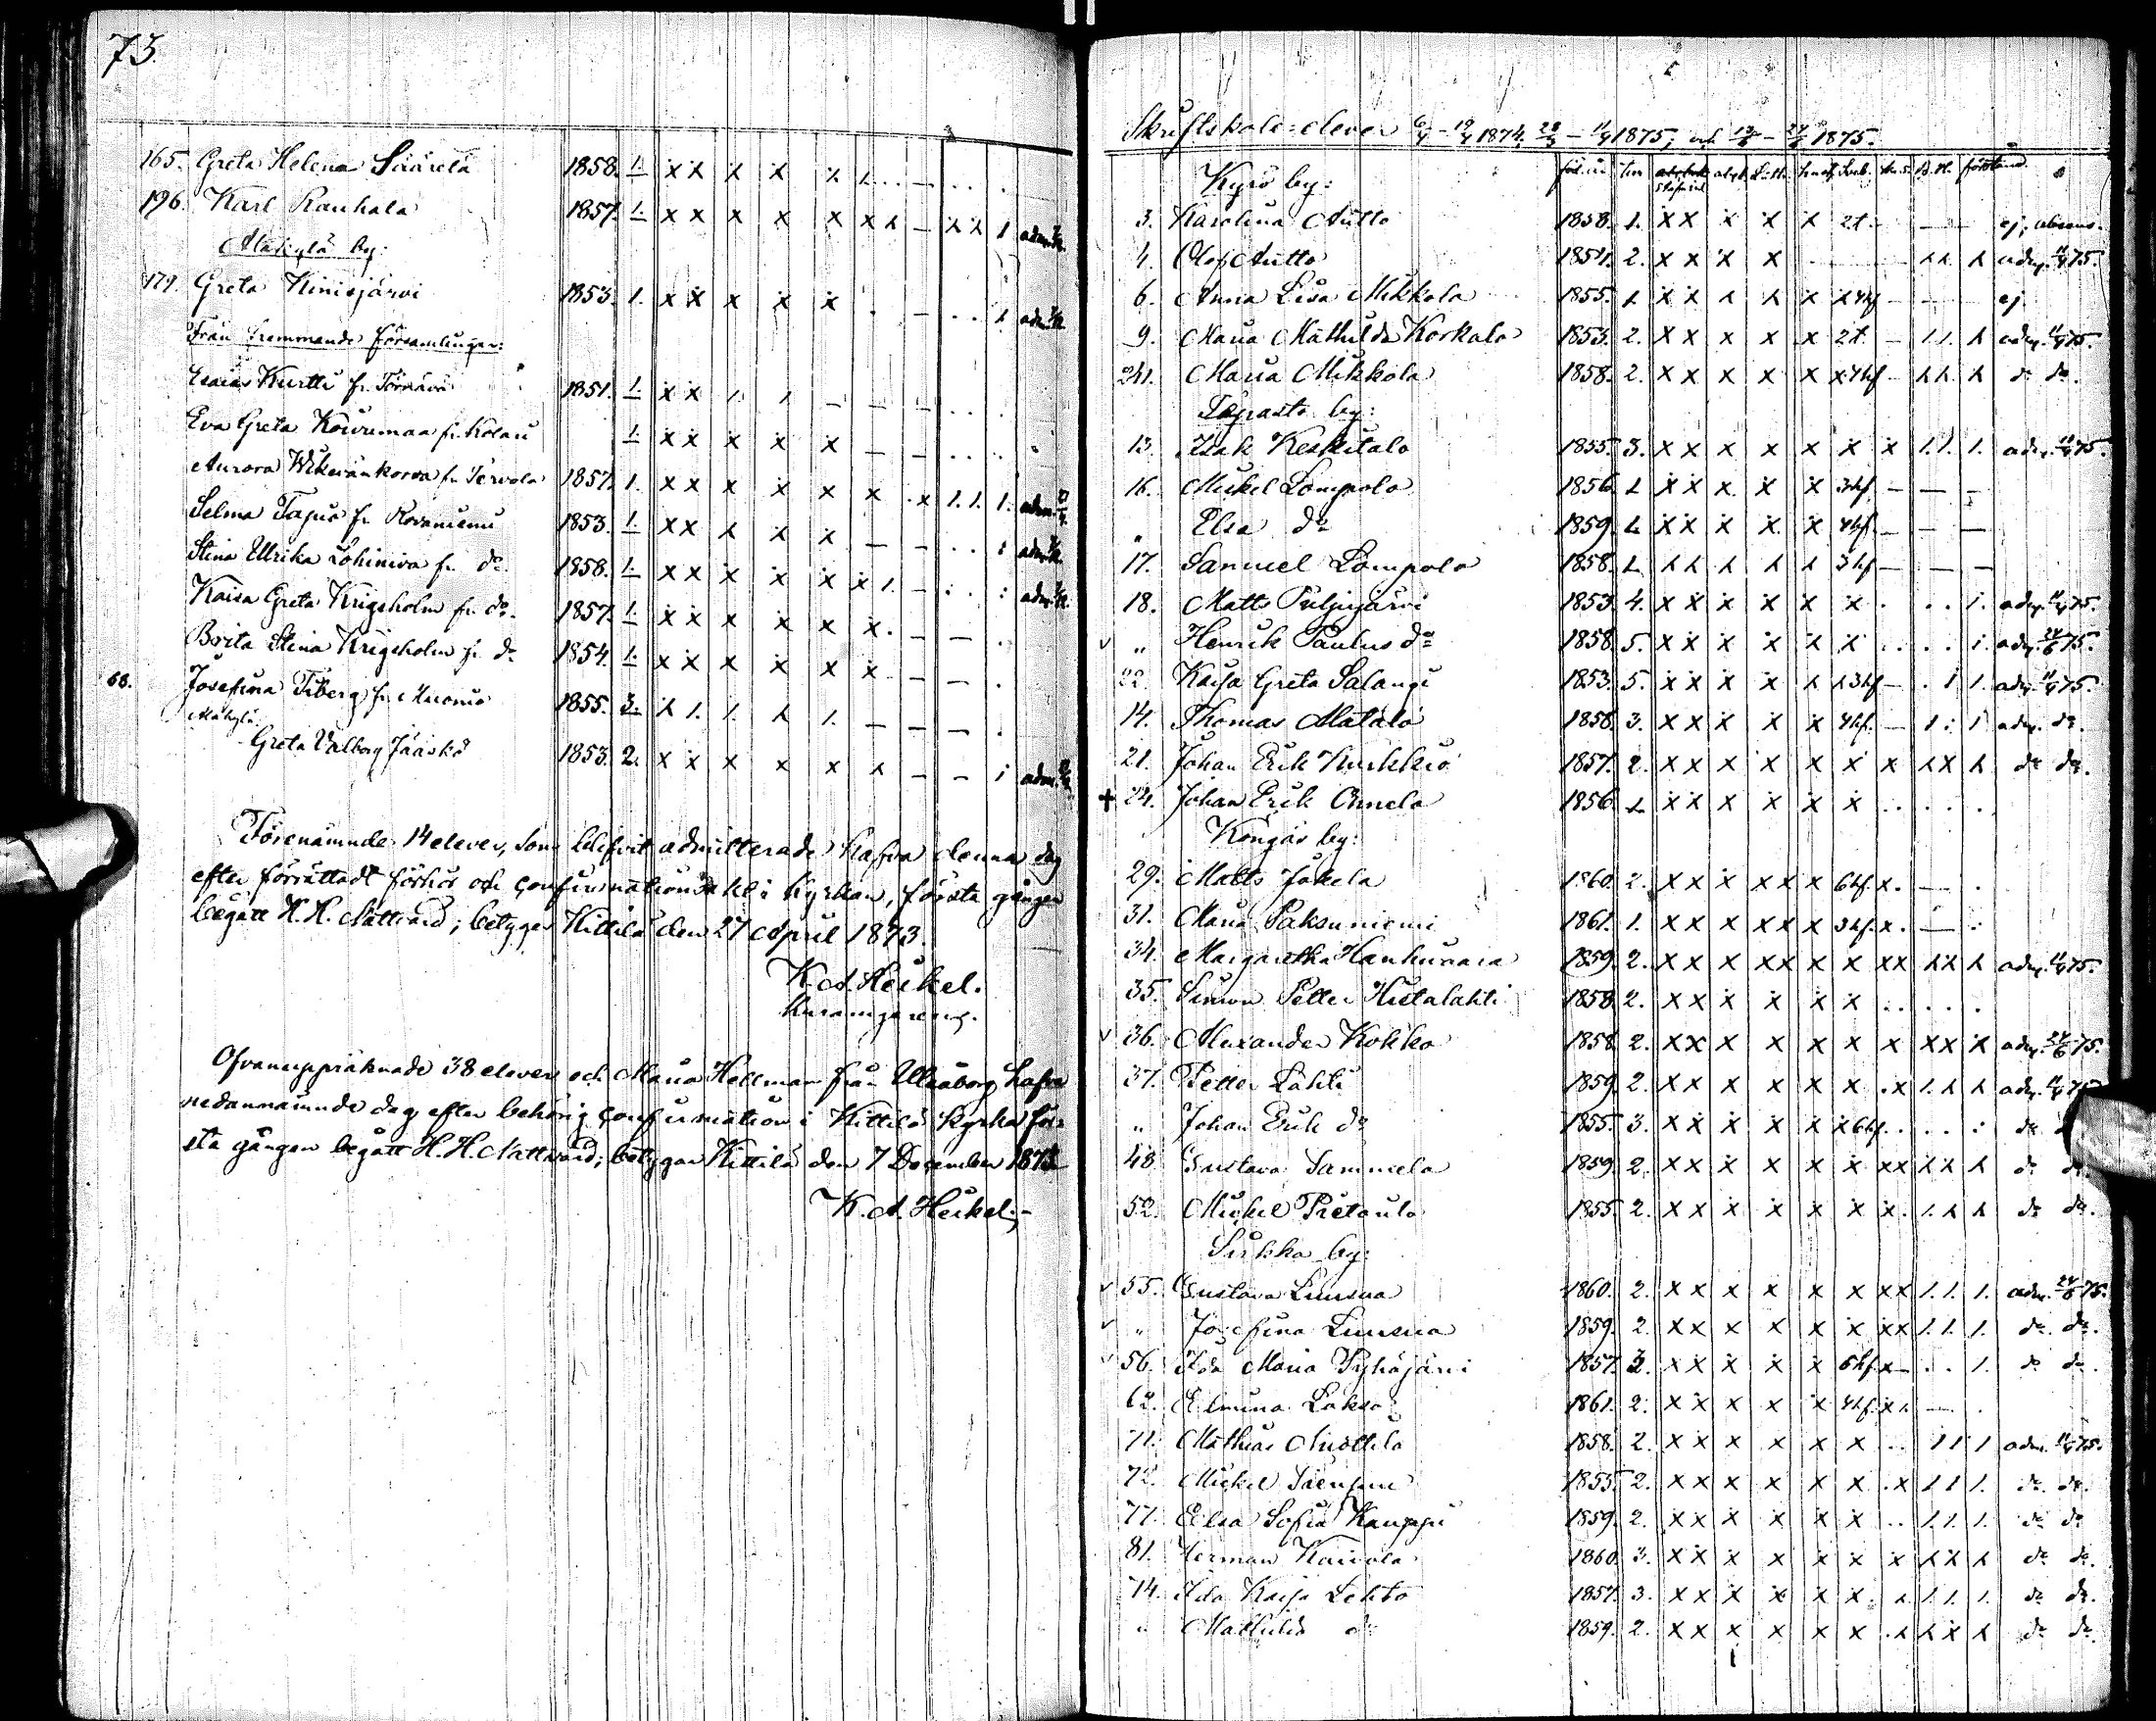 73.
165. Greta Helena Säärelä 1858. 1. x x x x x 1. . . — . . .
196. Karl Rauhala 1857. 1. x x x x x x x — x x 1 adm.
Alakylä by:
179. Greta Kinisjärvi 1853. 1. x x x x x . — . . 1 adm.
Från fremmande församlingar:
Esaias Kurtti fr. Törnävä 1851. 1. x x 1. 1. — — — . . .
Eva Greta Koivumaa fr. Kolari 1. x x x x x — — . . .
Aurora Wikeväinkorva fr. Tervola 1857. 1. x x x x x x . x 1. 1. 1. adm.
Selma Tapio fr. Rovaniemi 1853. 1. x x x x x — — . . : adm.
Stina Ulrika Lohiniva fr. do. 1858. 1. x x x x x x 1. — : . : adm.
Kaisa Greta Krigsholm fr. do. 1857. 1. x x x x x x . — — .
Brita Stina Krigsholm fr. do 1854. 1. x x x x x x — — .
68. Josefina Fiberg fr. Muonio 1855. 3. x 1. 1. x 1. — — — .
Alakylä
Greta Valborg Jääskö 1853. 2. x x x x x x — — i adm.
Förenämnde 14 elever, som blifvit admitterade hafva denna dag
efter förrättadt förhör och confirmationsakt i Kyrkan, första gången
begått H. H. Nattvard; betygar Kittilä den 27 April 1873.
K. A. Heikel.
Ofvanuppräknade 38 elever och Maria Hellman från Uleåborg hafva
nedannämnde dag efter behörig confirmation i Kittilä Kyrka för-
sta gången begått H. H. Nattvard; betygar Kittilä den 7 December 1873
K. A. Heikel.
Skriftskole-elever 6/4 – 19/4 1874. 28/3 – 11/4 1875, och 13/6 – 24/6 1875.
Kyrö by:
3. Karolina Autto 1858. 1. x x x x x 2 t. — — ej, absens.
4. Olof Autto 1854. 2. x x x x x x x adm. 11/4 75.
6. Anna Lisa Mikkola 1855. 1 x x x x x x 4 hf — — ej
9. Maria Mathilda Korkalo 1853. 2. x x x x x 2 t. — 1. 1. x adm. 11/4 75.
241. Maria Mikkola 1858. 2. x x x x x x 4 hf — x x. x do do.
Tepasto by:
13. Isak Keskitalo 1855. 3. x x x x x x x 1. 1. 1. adm. 11/4 75.
16. Mickel Lompolo 1856 1 x x x x x 3 hf — — —
" Elsa do 1859. 1 x x x x x 4 hf. — — —
17. Samuel Lompolo 1858. 1 x x x x x 3 hf — — —
18. Matts Puljujärvi 1853. 4. x x x x x x . . . 1. adm. 11/4 75.
v " Henrik Paulus do 1858. 5. x x x x x x . . . . 1. adm. 24/6 75.
22. Kaisa Greta Salangi 1853. 5. x x x x x x 3 hf — . 1 1. adm. 11/4 75.
14. Thomas Alatalo 1858. 3. x x x x x 4 hf. — 1 : 1 adm. do.
21. Johan Erik Kurkkio 1857. 2. x x x x x x x x x x do do.
+ 24. Johan Erik Onnela 1856 1 x x x x x x . . . . .
Köngäs by:
29. Matts Jokela 1860. 2. x x x x x x 6 hf. x. — .
31. Maria Paksuniemi 1861. 1. x x x x x x 3 hf. x. — .
34. Margaretha Hanhuvaara 1859. 2. x x x x x x x x x x x x adm. 11/4 75.
35. Simon Petter Hietalahti 1858. 2. x x x x x x . . . . .
v 36. Alexander Kokko 1858. 2. x x x x x x x x x x adm. 24/6 75.
37. Petter Lahti 1859. 2. x x x x x x . x 1. x x adm. 11/4 75
" Johan Erik do 1855. 3. x x x x x x 6 hf. . . . : do
48. Gustava Sammela 1859. 2. x x x x x x x x x x x do do
52. Mickel Pietaula 1855. 2. x x x x x x x. 1. x x do do.
Sirkka by:
v 55. Gustava Liusua 1860. 2. x x x x x x x x 1. 1. 1. adm. 24/6 75.
v " Josefina Liusua 1859. 2. x x x x x x x x 1. 1. 1. do. do.
v 56. Ida Maria Pyhäjärvi 1857. 3. x x x x x 6 hf. x — . . 1. do do.
62. Elmina Lakso 1861. 2. x x x x x 4 hf. x 1. — .
71. Mathias Nuottila 1858. 2. x x x x x x . . 1 1 1 adm. 11/4 75.
72. Mickel 1855. 2. x x x x x x . x 1 1 1. do. do.
77. Elsa Sofia Kauppi 1859. 2. x x x x x x . . 1. 1. 1. do do
81. Herman Kaivola 1860. 3. x x x x x x x x x x do do.
74. Ida Kaisa Lehto 1857. 3. x x x x x x . x. 1. 1. 1. do do.
" Mathilda do 1859. 2. x x x x x x . x x x x do do.